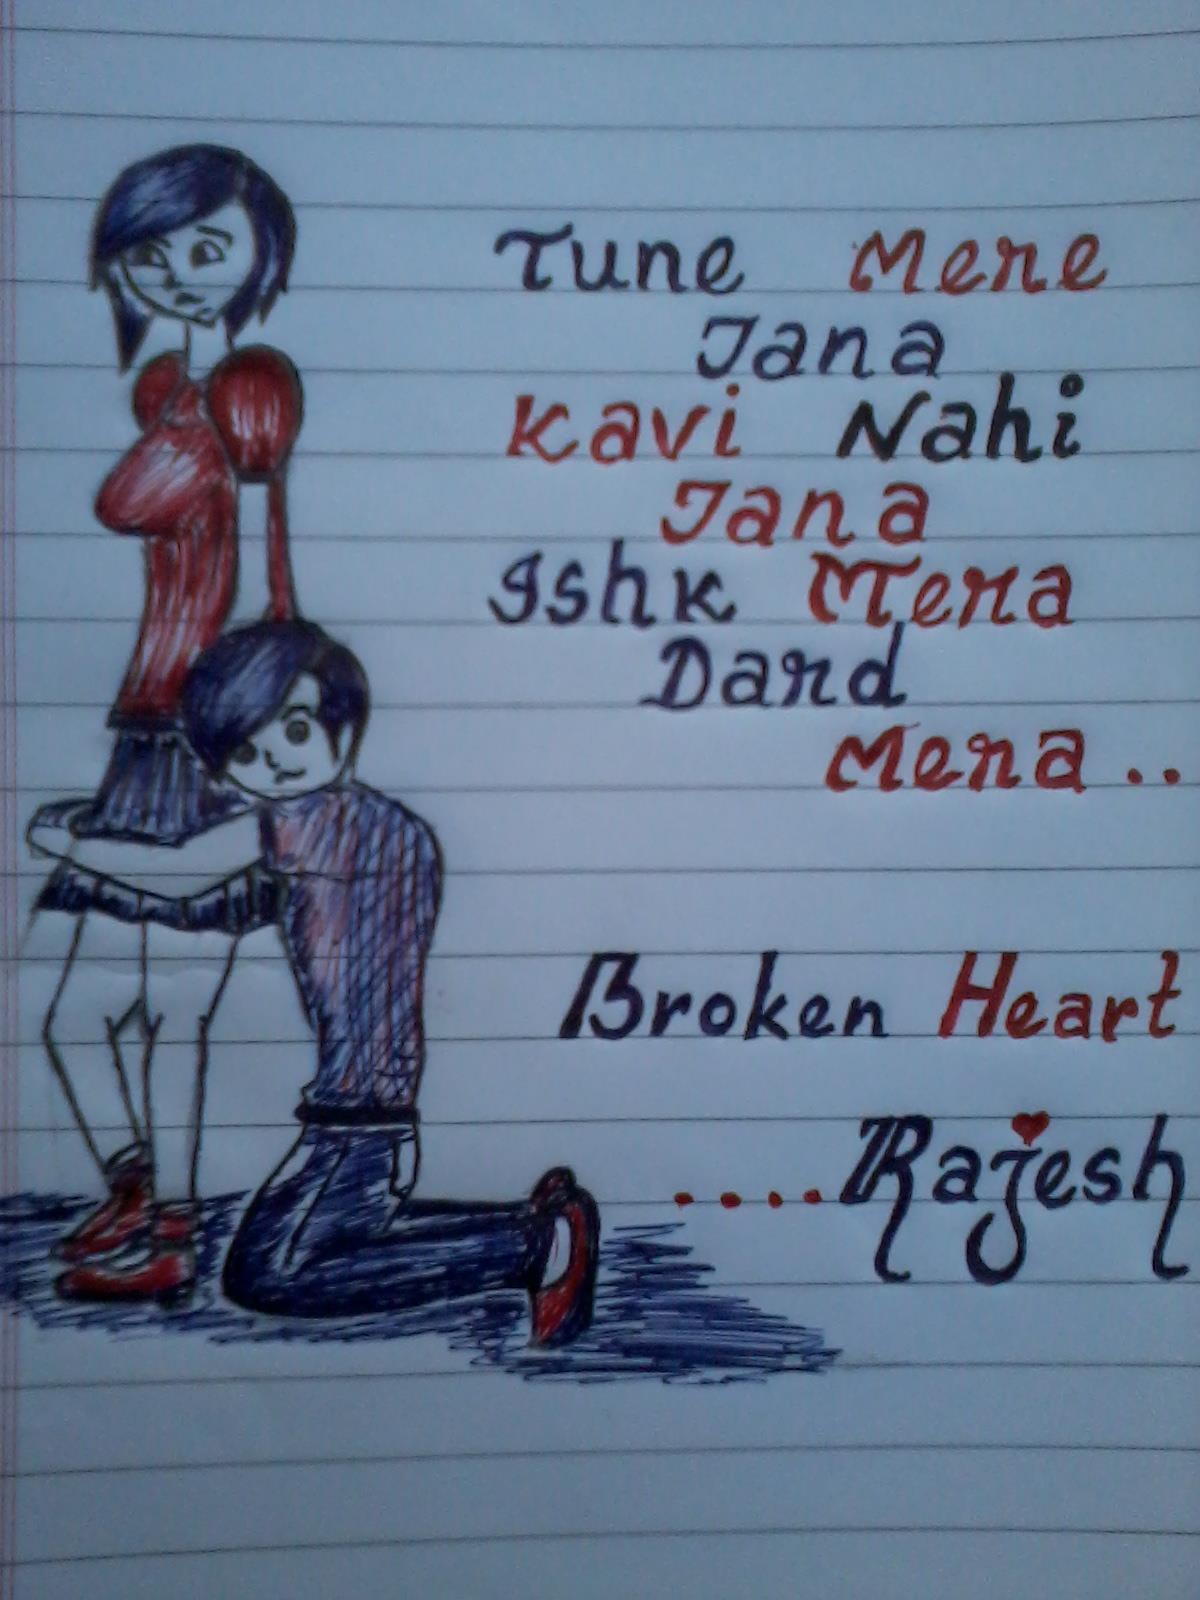 Tune Mere
Jana
Kavi Nahi
Jana
Ishk Mera
Dard
Mera..
Broken Heart
....Rajesh